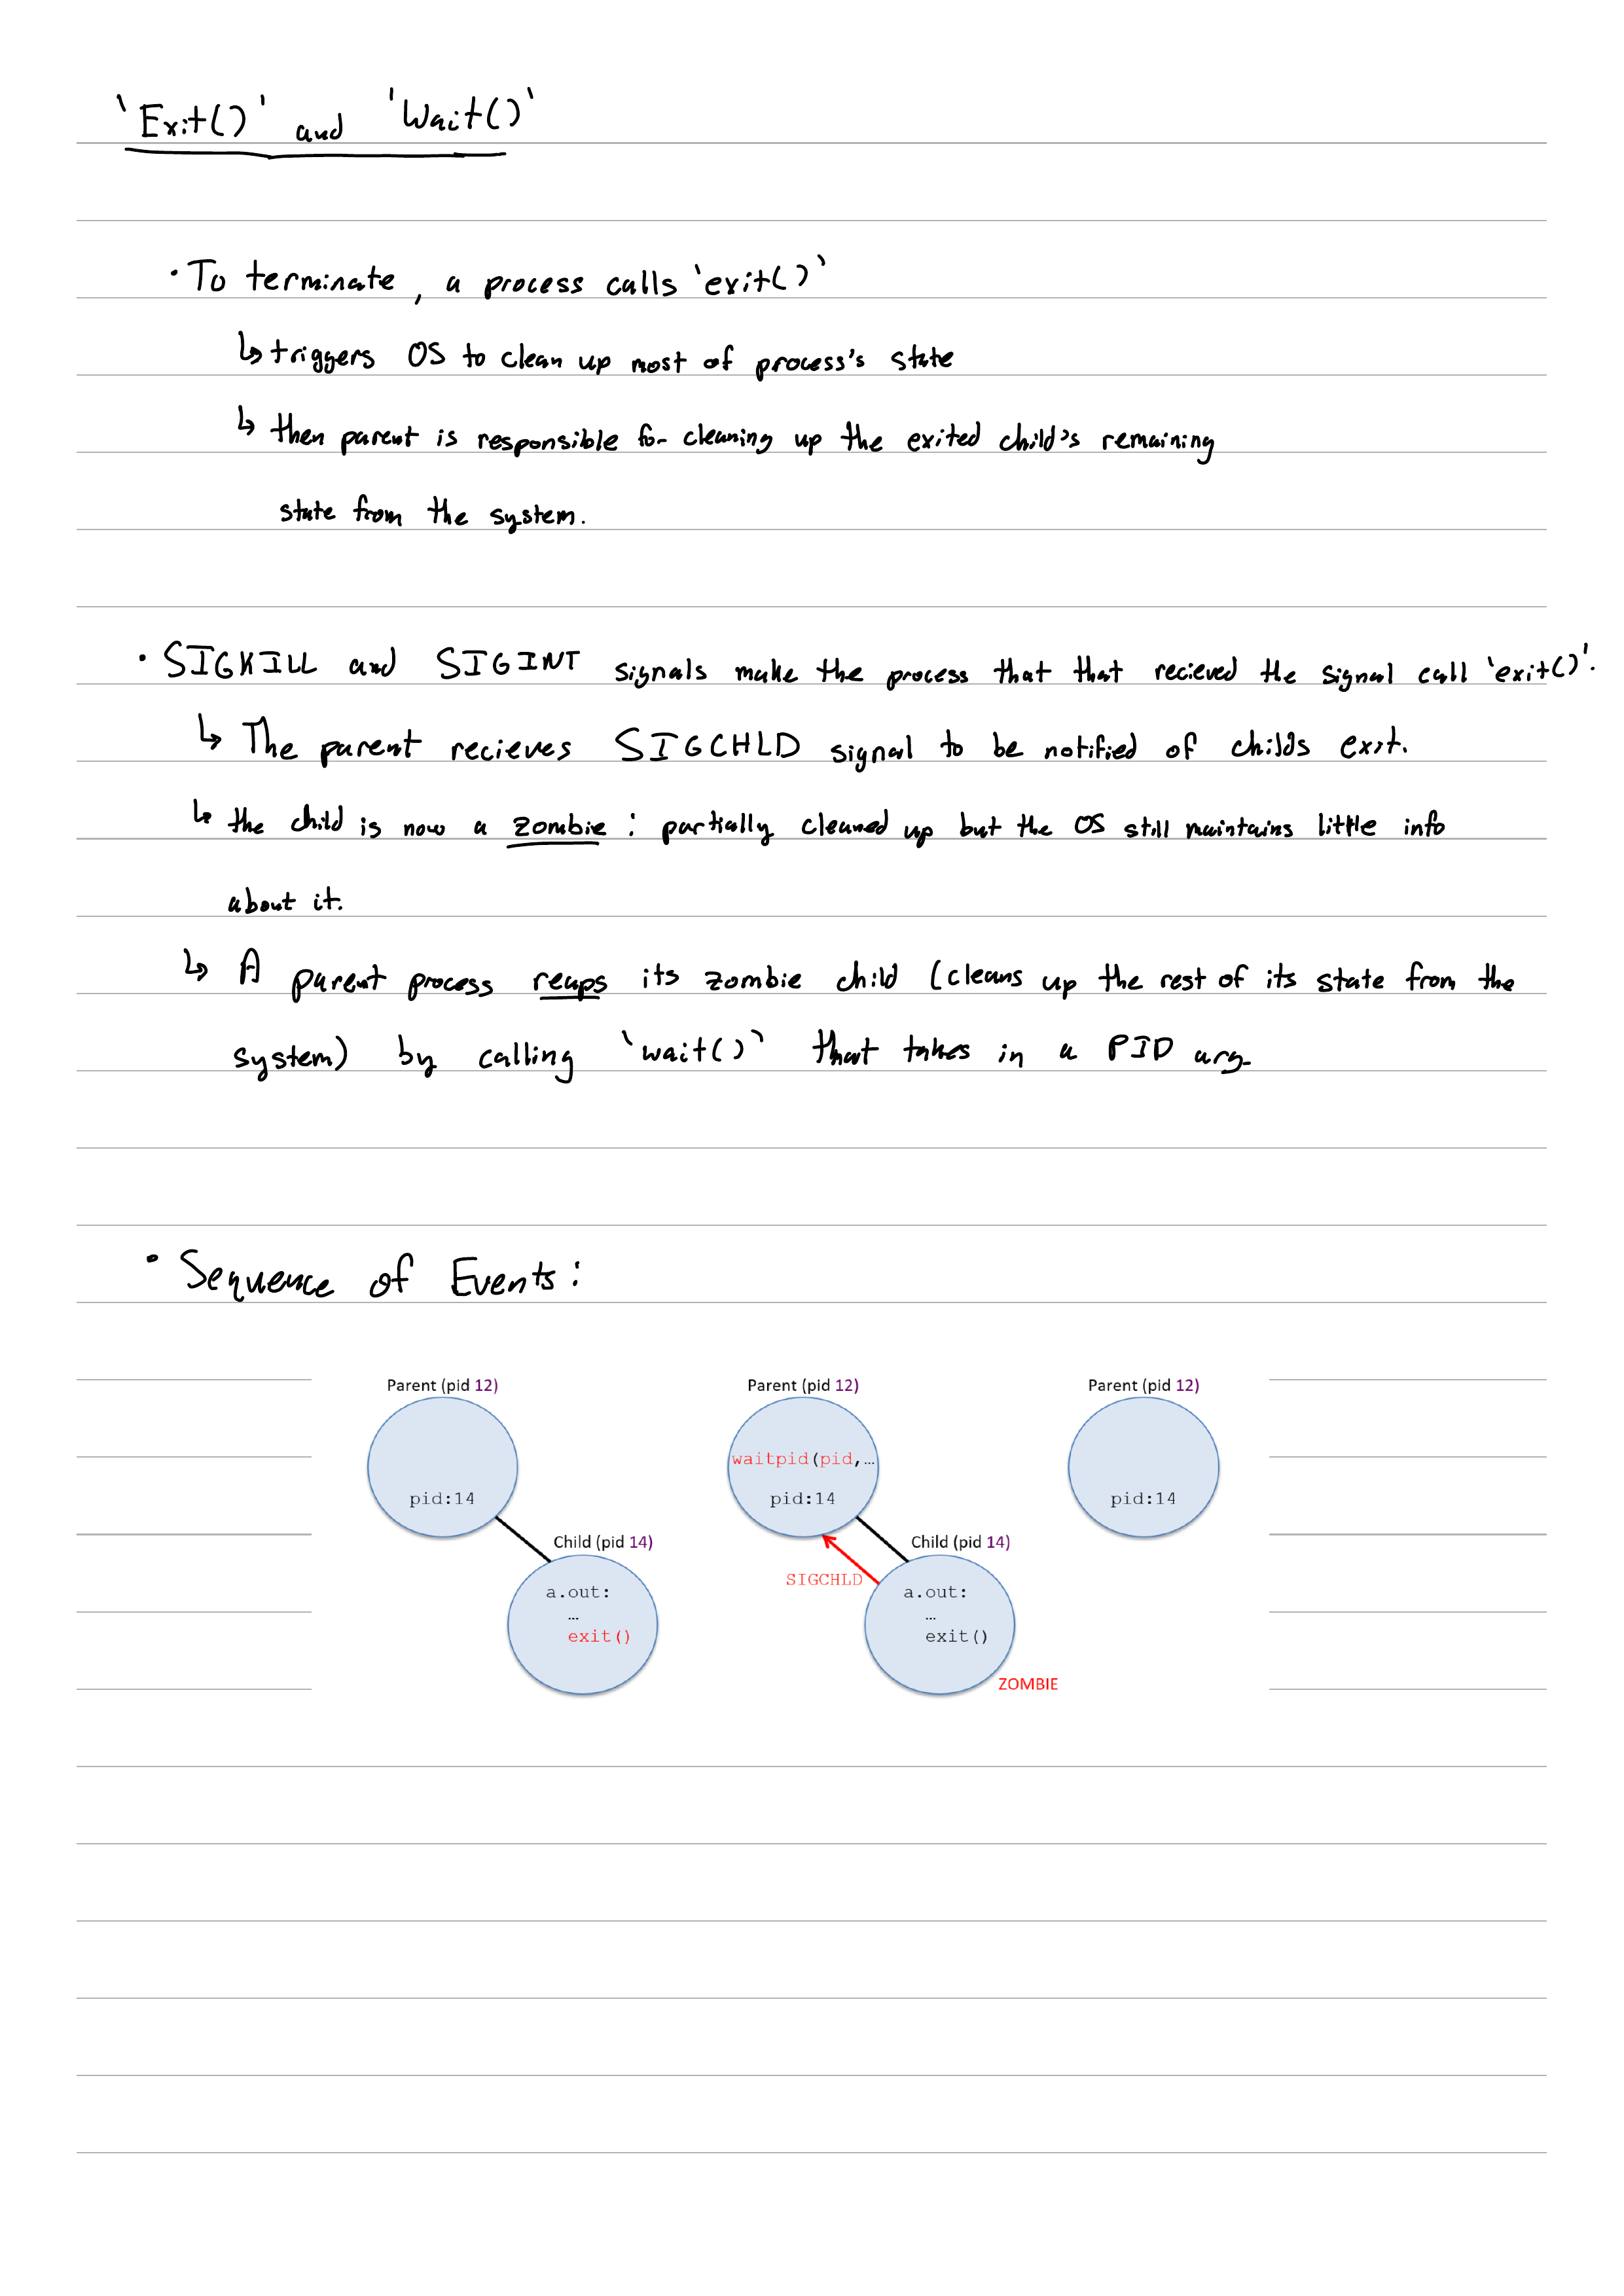 'Exit()' and 'Wait()'
• To terminate, a process calls 'exit()'
↳ triggers OS to clean up most of process's state
↳ then parent is responsible for cleaning up the exited child's remaining
state from the system.
• SIGKILL and SIGINT signals make the process that that recieved the signal call 'exit()'.
↳ The parent recieves SIGCHLD signal to be notified of childs exit.
↳ the child is now a zombie : partially cleaned up but the OS still maintains little info
about it.
↳ A parent process reaps its zombie child (cleans up the rest of its state from the
system) by calling 'wait()' that takes in a PID arg.
• Sequence of Events:
Parent (pid 12) Parent (pid 12) Parent (pid 12)
waitpid(pid,…
pid:14 pid:14 pid:14
Child (pid 14) Child (pid 14)
SIGCHLD
a.out: a.out:
… …
exit() exit()
ZOMBIE